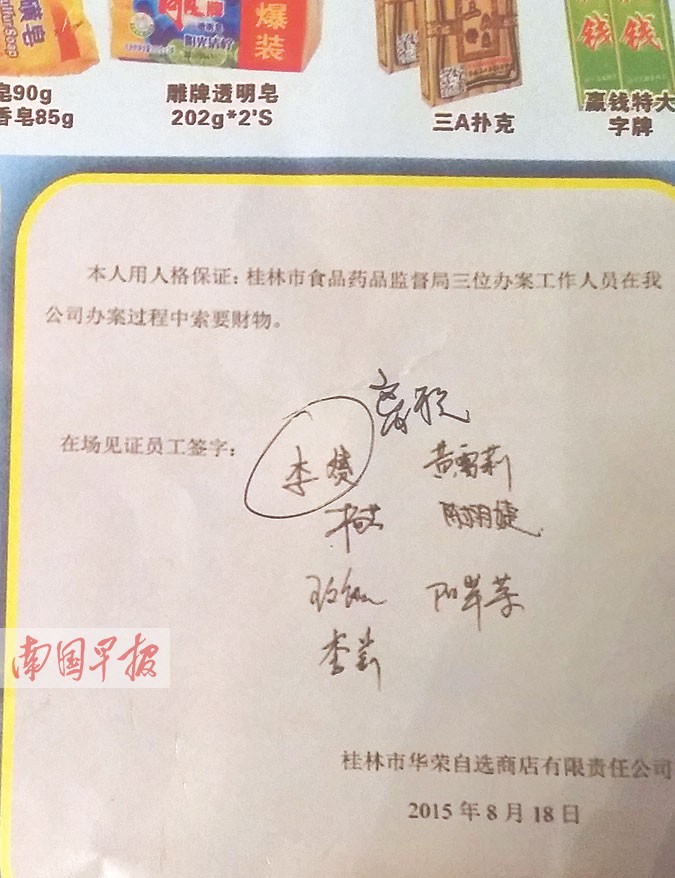 爆
装
皂90g
香皂85g
雕牌透明皂
202g*2'S
三A扑克
钱 钱
赢钱特大
字牌
本人用人格保证：桂林市食品药品监督局三位办案工作人员在我
公司办案过程中索要财物。
在场见证员工签字：
李赟 黄雪莉
陈翔婕
李岩
南国早报
桂林市华荣自选商店有限责任公司
2015年8月18日